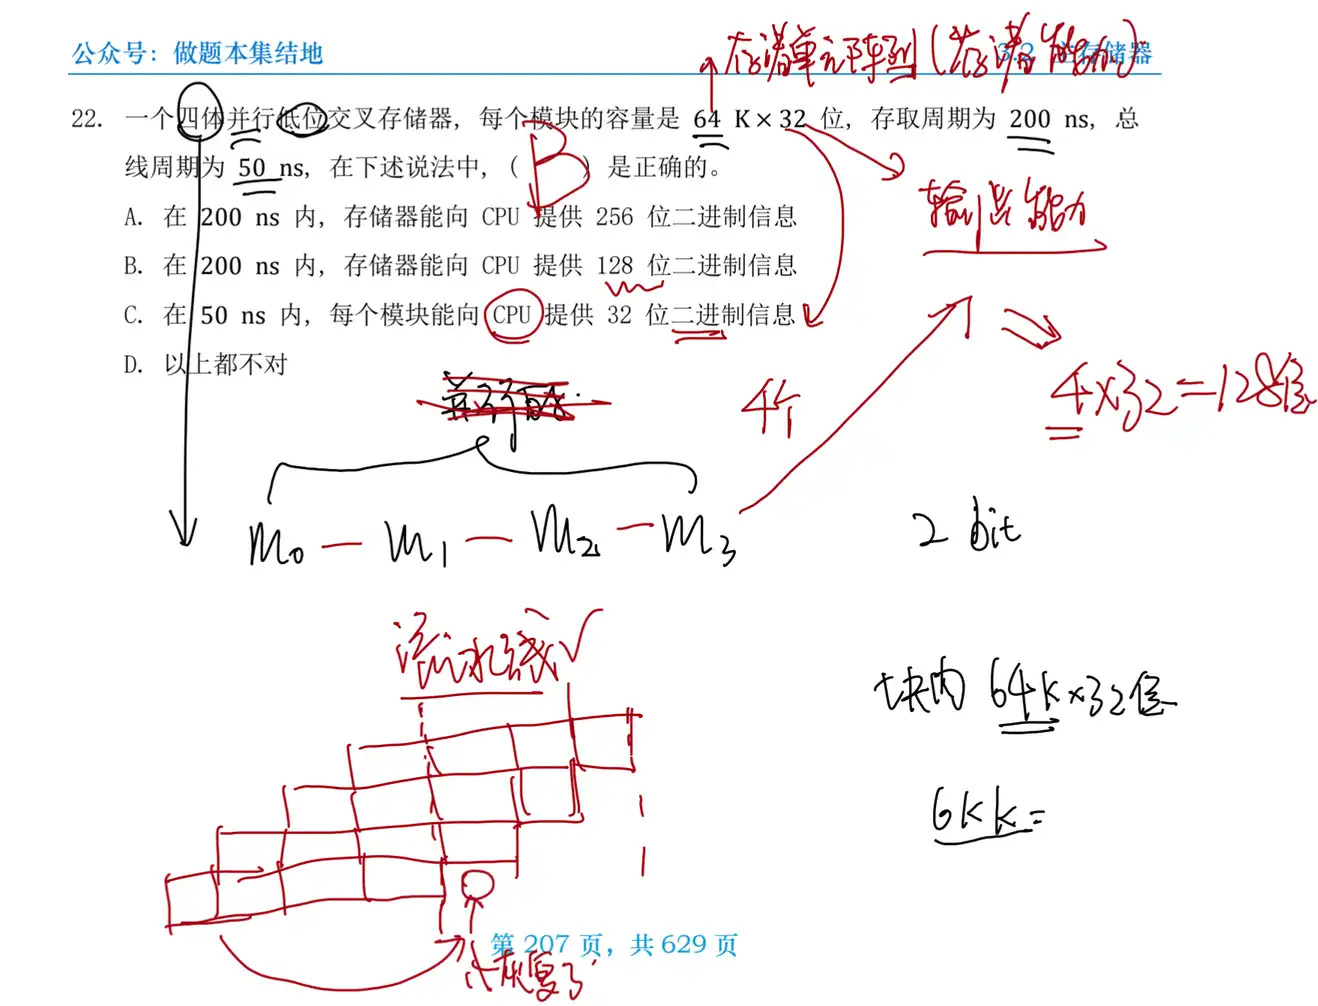 公众号：做题本集结地
存储单元阵列（存储能力）
22. 一个四体并行低位交叉存储器，每个模块的容量是 64 K×32 位，存取周期为 200 ns，总
线周期为 50 ns，在下述说法中，（ B ）是正确的。
A. 在 200 ns 内，存储器能向 CPU 提供 256 位二进制信息
输出能力
B. 在 200 ns 内，存储器能向 CPU 提供 128 位二进制信息
C. 在 50 ns 内，每个模块能向 CPU 提供 32 位二进制信息
D. 以上都不对
4个
4×32=128位
m0 — m1 — m2 — m3
2 bit
流水线√
块内 64K×32位
第 207 页，共 629 页
恢复了